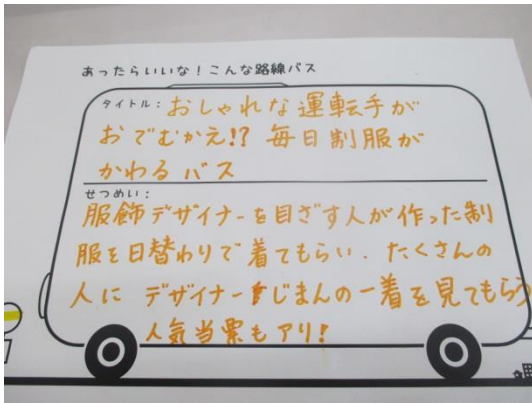 あったらいいな！こんな路線バス
タイトル：おしゃれな運転手が
おでむかえ!? 毎日制服が
かわるバス
せつめい：
服飾デザイナーを目ざす人が作った制
服を日替わりで着てもらい、たくさんの
人にデザイナーじまんの一着を見てもらう
人気当票もアリ！